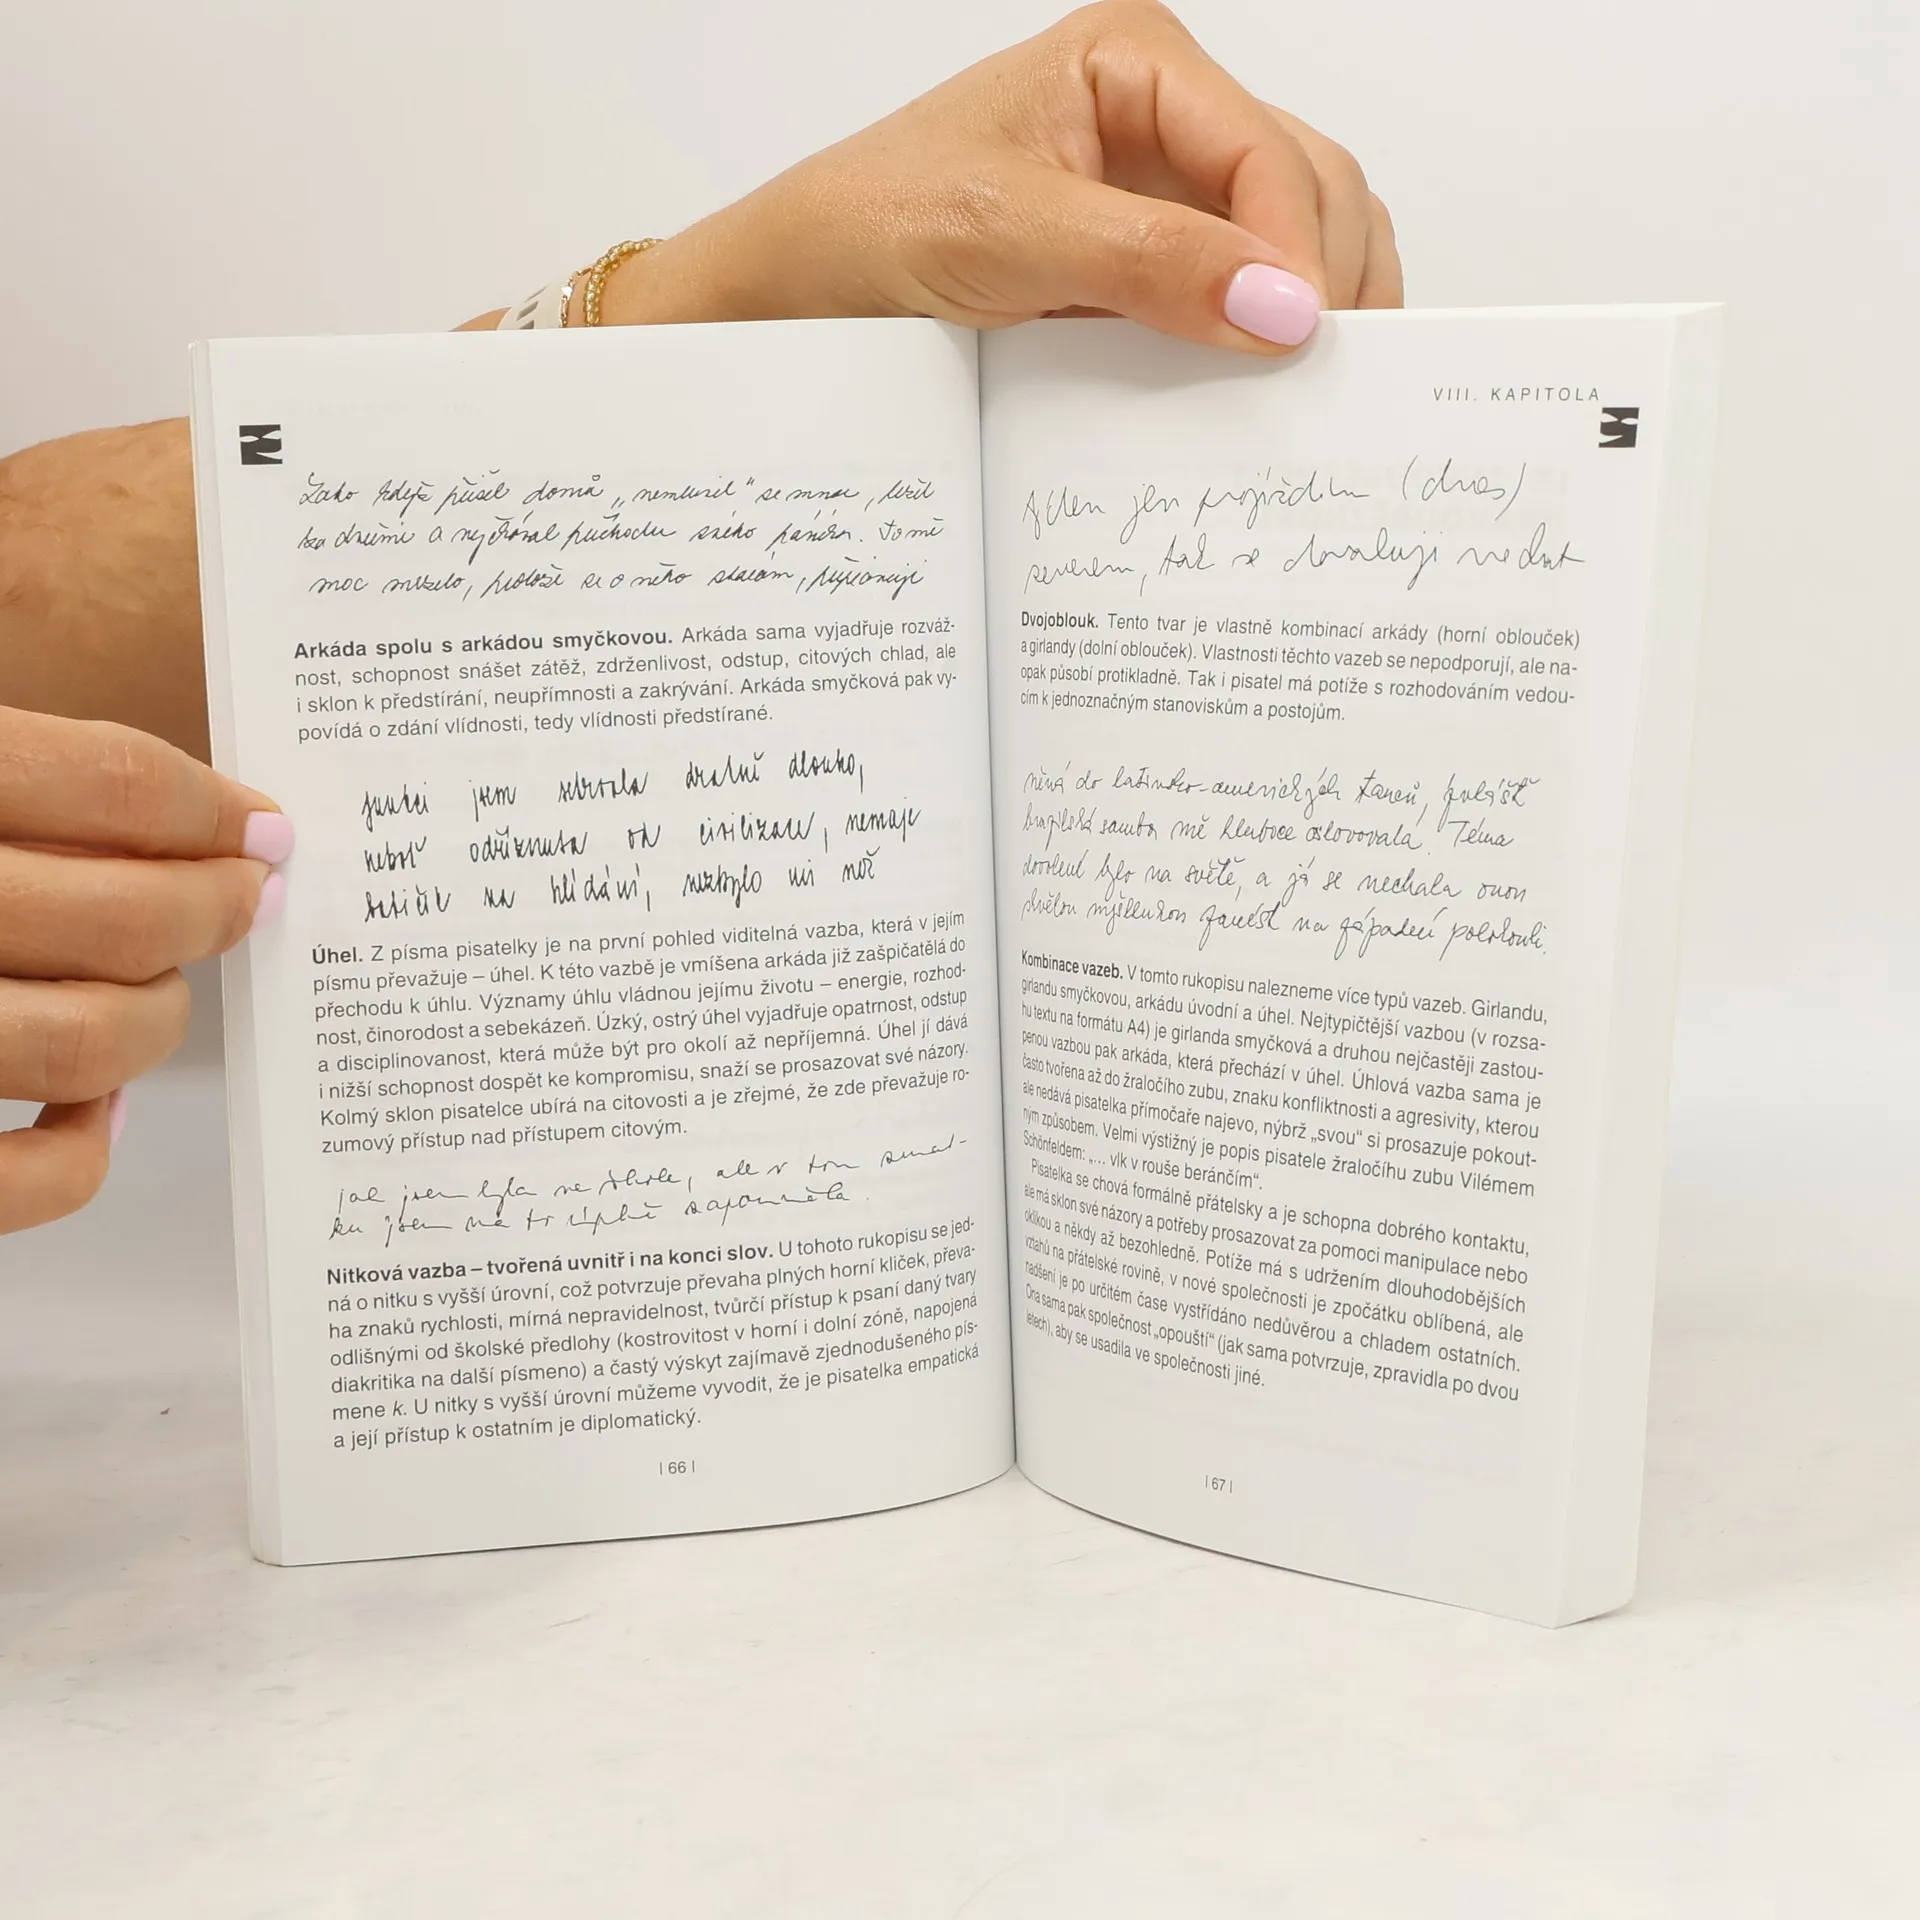 když přišel domů „nemluvil" se mnou, ležel
a
moc mrzelo, protože se o něho starám,
Arkáda spolu s arkádou smyčkovou. Arkáda sama vyjadřuje rozváž-
nost, schopnost snášet zátěž, zdrženlivost, odstup, citových chlad, ale
i sklon k předstírání, neupřímnosti a zakrývání. Arkáda smyčková pak vy-
povídá o zdání vlídnosti, tedy vlídnosti předstírané.
funkci jsem setrvala dlouho,
neboť odříznuta od civilizace, nemaje
babiček na hlídání, nezbylo mi než
Úhel. Z písma pisatelky je na první pohled viditelná vazba, která v jejím
písmu převažuje – úhel. K této vazbě je vmíšena arkáda již zašpičatělá do
přechodu k úhlu. Významy úhlu vládnou jejímu životu – energie, rozhod-
nost, činorodost a sebekázeň. Úzký, ostrý úhel vyjadřuje opatrnost, odstup
a disciplinovanost, která může být pro okolí až nepříjemná. Úhel jí dává
i nižší schopnost dospět ke kompromisu, snaží se prosazovat své názory.
Kolmý sklon pisatelce ubírá na citovosti a je zřejmé, že zde převažuje ro-
zumový přístup nad přístupem citovým.
jak jsem byla ve škole, ale v tom zmat-
ku jsem na to úplně zapomněla.
Nitková vazba – tvořená uvnitř i na konci slov. U tohoto rukopisu se jed-
ná o nitku s vyšší úrovní, což potvrzuje převaha plných horní kliček, převa-
ha znaků rychlosti, mírná nepravidelnost, tvůrčí přístup k psaní daný tvary
odlišnými od školské předlohy (kostrovitost v horní i dolní zóně, napojená
diakritika na další písmeno) a častý výskyt zajímavě zjednodušeného pís-
mene k. U nitky s vyšší úrovní můžeme vyvodit, že je pisatelka empatická
a její přístup k ostatním je diplomatický.
| 66 |
VIII. KAPITOLA
jen projíždím (dnes)
severem, tak se
Dvojoblouk. Tento tvar je vlastně kombinací arkády (horní oblouček)
a girlandy (dolní oblouček). Vlastnosti těchto vazeb se nepodporují, ale na-
opak působí protikladně. Tak i pisatel má potíže s rozhodováním vedou-
cím k jednoznačným stanoviskům a postojům.
do latinsko-amerických tanců, zvláště
brazilská samba mě hluboce oslovovala. Téma
dovolené bylo na světě, a já se nechala onou
skvělou myšlenkou zanést na západní polokouli.
Kombinace vazeb. V tomto rukopisu nalezneme více typů vazeb. Girlandu,
girlandu smyčkovou, arkádu úvodní a úhel. Nejtypičtější vazbou (v rozsa-
hu textu na formátu A4) je girlanda smyčková a druhou nejčastěji zastou-
penou vazbou pak arkáda, která přechází v úhel. Úhlová vazba sama je
často tvořena až do žraločího zubu, znaku konfliktnosti a agresivity, kterou
ale nedává pisatelka přímočaře najevo, nýbrž „svou" si prosazuje pokout-
ným způsobem. Velmi výstižný je popis pisatele žraločíhu zubu Vilémem
Schönfeldem: „... vlk v rouše beránčím".
Pisatelka se chová formálně přátelsky a je schopna dobrého kontaktu,
ale má sklon své názory a potřeby prosazovat za pomoci manipulace nebo
oklikou a někdy až bezohledně. Potíže má s udržením dlouhodobějších
vztahů na přátelské rovině, v nové společnosti je zpočátku oblíbená, ale
nadšení je po určitém čase vystřídáno nedůvěrou a chladem ostatních.
Ona sama pak společnost „opouští" (jak sama potvrzuje, zpravidla po dvou
letech), aby se usadila ve společnosti jiné.
| 67 |